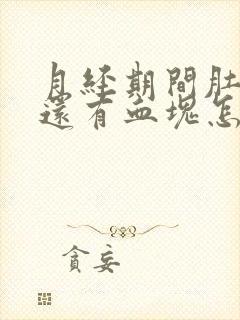 月經期間肚
還有血塊怎
貪妄